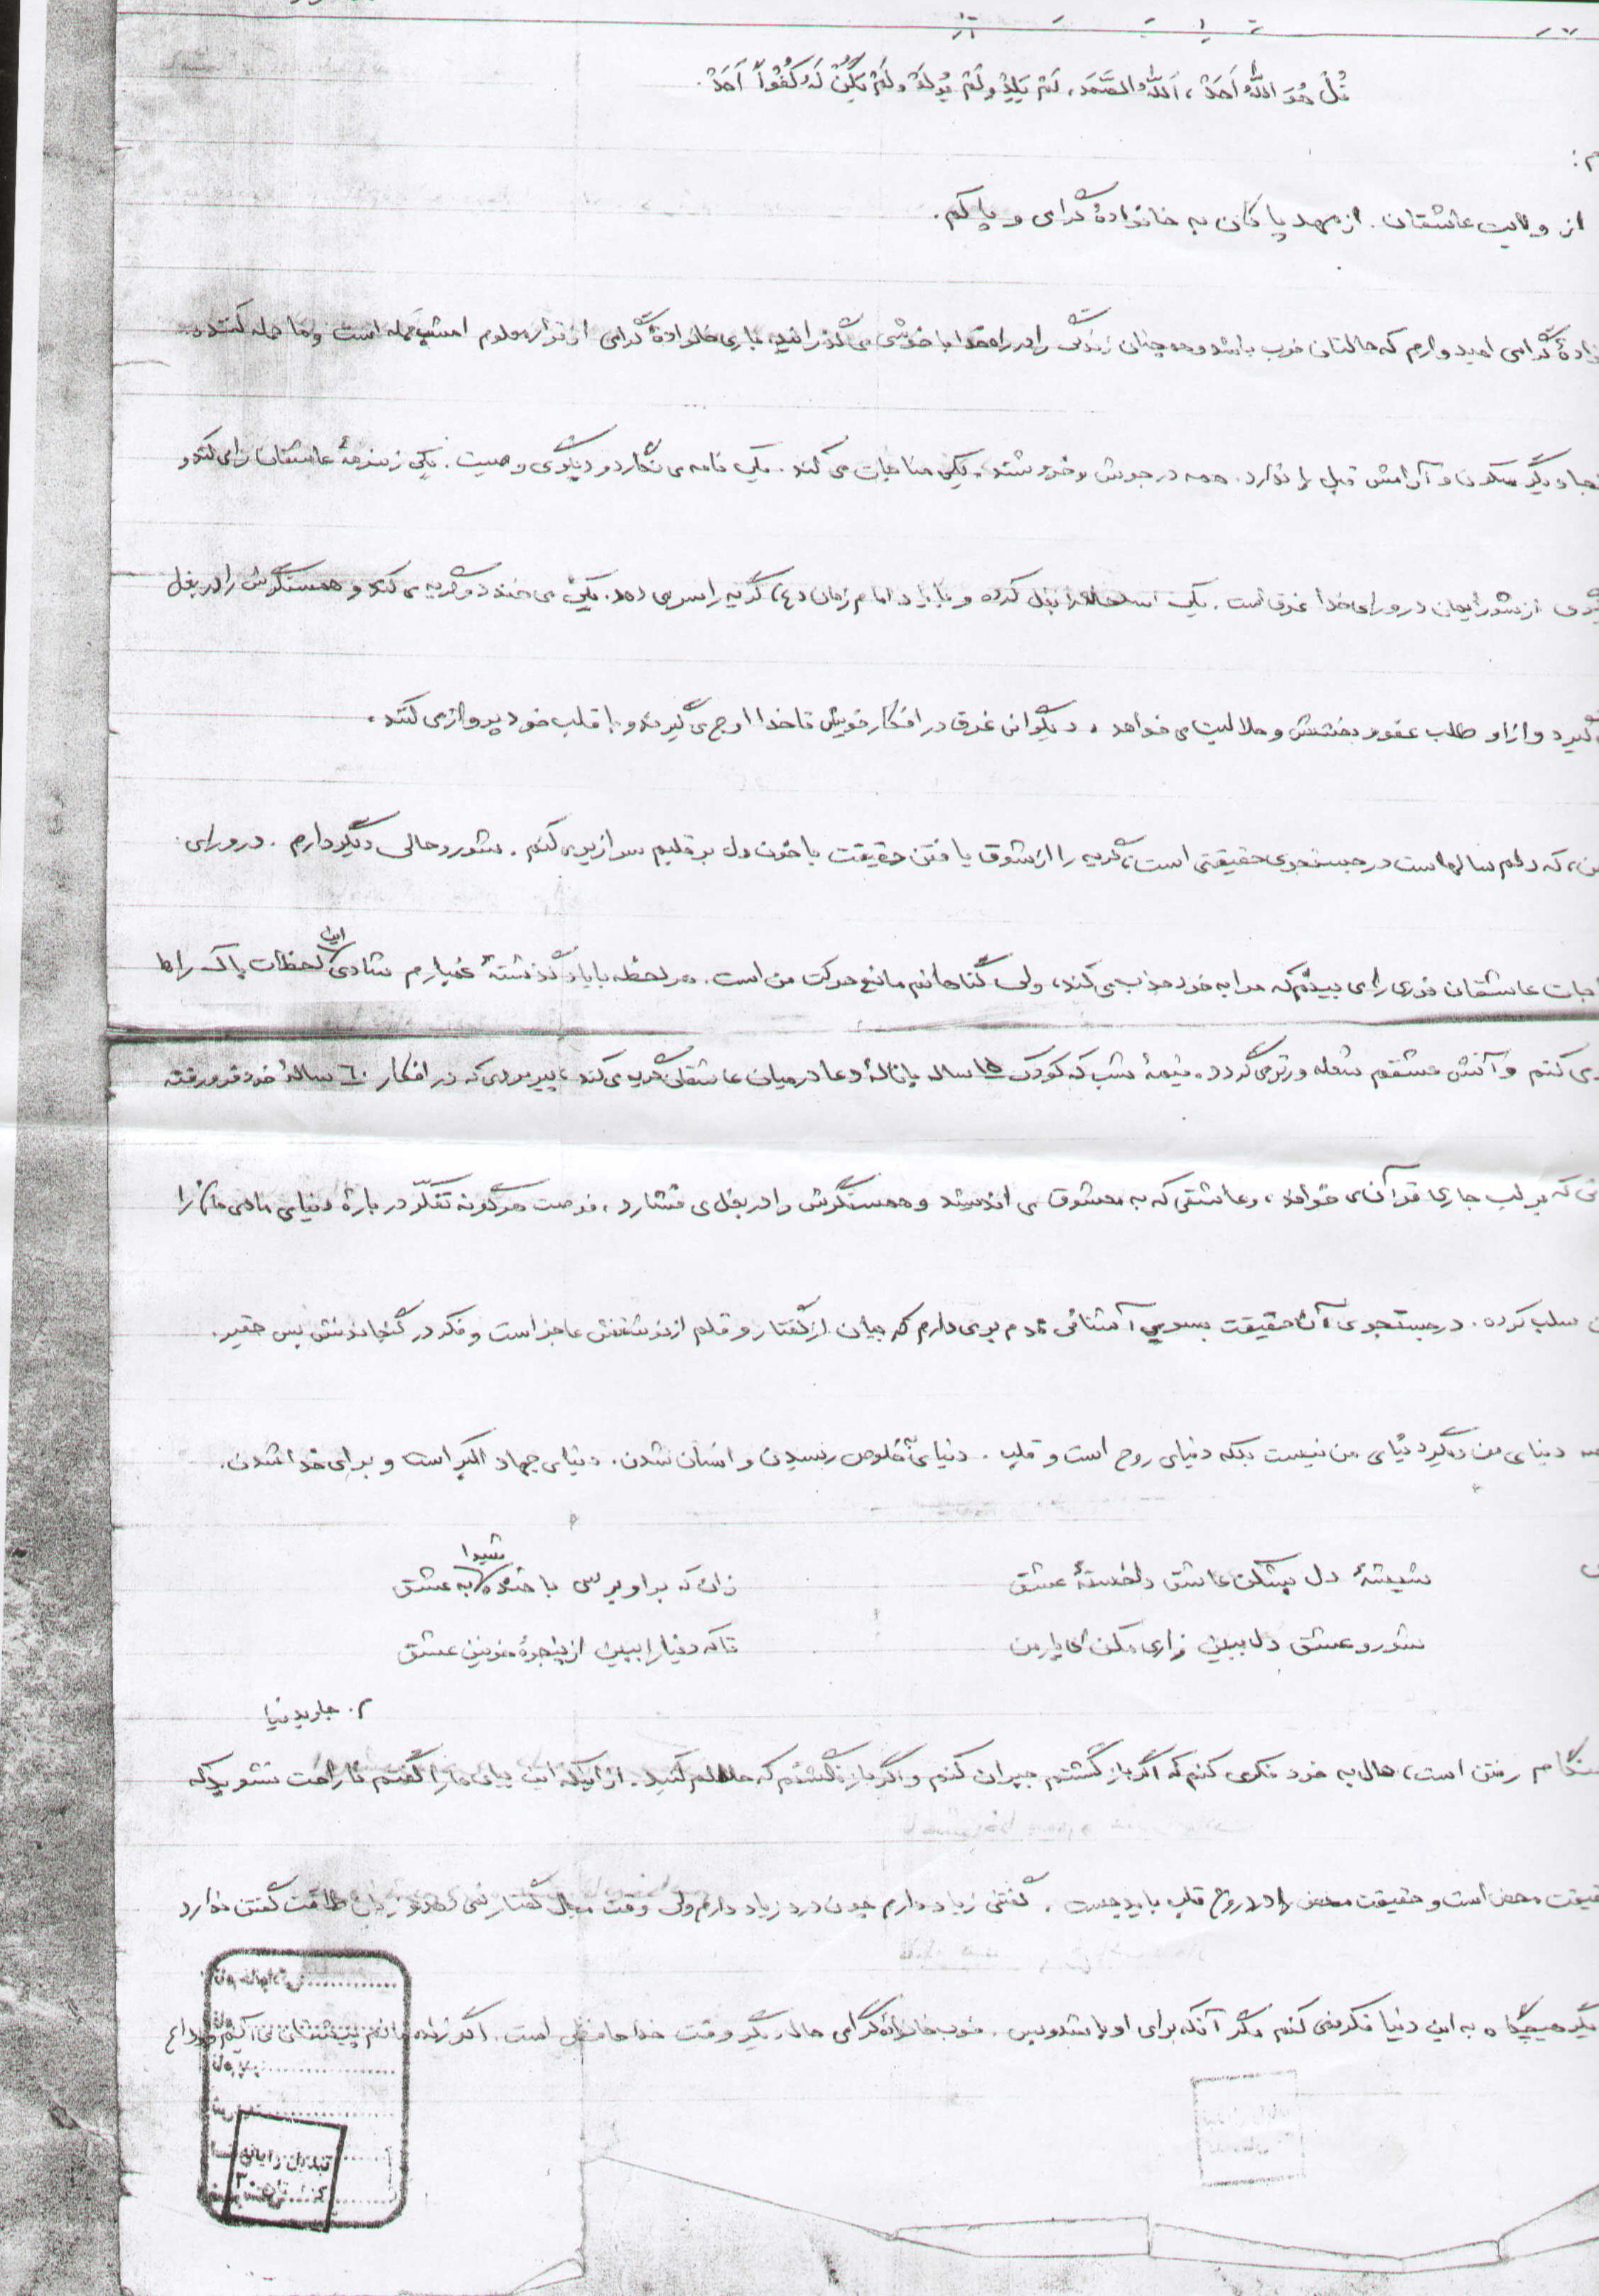 قُلْ هُوَ اللهُ اَحَدْ، اَللهُ الصَّمَد، لَمْ یَلِدْ وَ لَمْ یُولَدْ وَ لَمْ یَکُنْ لَهُ کُفُواً اَحَدْ.
از ولایت عاشقان. از مهد پاکان به خانوادهٔ گرامی و پاکم.
گرامی امیدوارم که حالتان خوب باشد و همچنان زندگی را در راه خدا با خوشی می‌گذرانید، باری خانوادهٔ گرامی از قرار معلوم امشب حمله است و ما حمله کننده.
دیگر سکوت و آرامش قبل را ندارد. همه در جوش و خروشند. یکی مناجات می کند. یکی نامه می نگارد و دیگری وصیت. یکی زمزمهٔ عاشقان را می کند و
از شور ایمان در ورای خدا غرق است. یکی اسلحه را بغل کرده و با یاد امام زمان (ع) گریه را سر می دهد. یکی می خندد و گریه می کند و همسنگرش را در بغل
گیرد و از او طلب عفو و بخشش و حلالیت می خواهد. دیگری غرق در افکار خویش تا خدا اوج می گیرد و با قلب خود پرواز می کند.
من، که دلم سالهاست در جستجوی حقیقتی است، گریه را از شوق یافتن حقیقت با خون دل بر قلبم سرازیر می کنم. شور و حالی دیگر دارم. در ورای
عاشقان نوری را می بینم که مرا به خود جذب می کند، ولی گناهانم مانع حرکت من است. هر لحظه با یاد گذشتهٔ غمبارم شادی این لحظات پاک را
می کنم و آتش عشقم شعله ورتر می گردد. نیمهٔ شب که کودک ۱۵ ساله با نالهٔ دعا در میان عاشقان گریه می کند، پیرمردی که در افکار ۶۰ سالهٔ خود فرو رفته
که بر لب جاری قرآن می خواند، و عاشقی که به معشوق می اندیشد و همسنگرش را در بغل می فشارد، فرصت هرگونه تفکّر در بارهٔ دنیای مادی را
سلب کرده. در جستجوی آن حقیقت بسوی آشنائی قدم برمی دارم که بیان از گفتار و قلم از نوشتنش عاجز است و فکر در گنجاندنش بس حقیر.
دنیای من دیگر دنیای من نیست بلکه دنیای روح است و قلب. دنیای به خلوص رسیدن و انسان شدن. دنیای جهاد اکبر است و برای خدا شدن.
شیشهٔ دل بشکن عاشق دلخستهٔ عشق	زان که بر او برسی با خندهٔ شیدا به عشق
شور و عشق دل ببین زاری مکن ای یار من	تا که دنیا را ببینی از پنجرهٔ خونین عشق
م. جاوید نیا
هنگام رفتن است، حال به خود فکر می کنم که اگر بازگشتم جبران کنم و اگر باز نگشتم که حلالم کنید. از اینکه این بیان ها را گفتم ناراحت نشوید که
حقیقت محض است و حقیقت محض را در روح قلب باید جست. گفتنی زیاد دارم چون درد زیاد دارم ولی وقت مجال گفتار نمی دهد و زبان طاقت گفتن ندارد
دیگر هیچگاه به این دنیا فکر نمی کنم مگر آنکه برای او باشد و بس. خوب خانوادهٔ گرامی حال دیگر وقت خداحافظی است. اگر زنده ماندم پیشتان می آیم